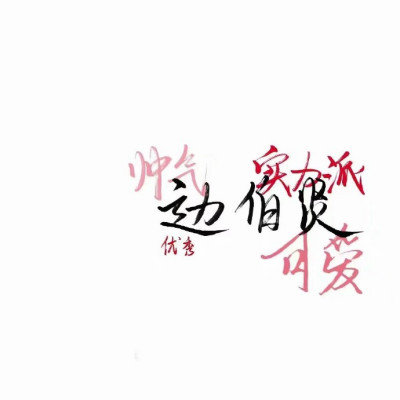 帅气
实力派
边伯贤
优秀
可爱